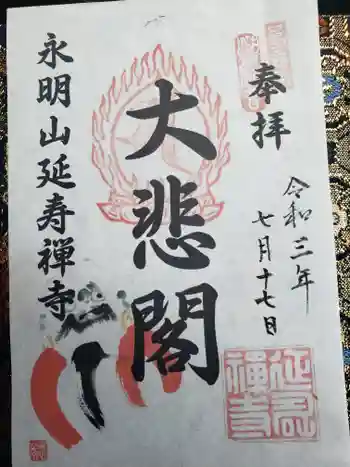 奉拝
令和三年
七月十七日
大悲閣
永明山延寿禅寺
延寿
禅寺